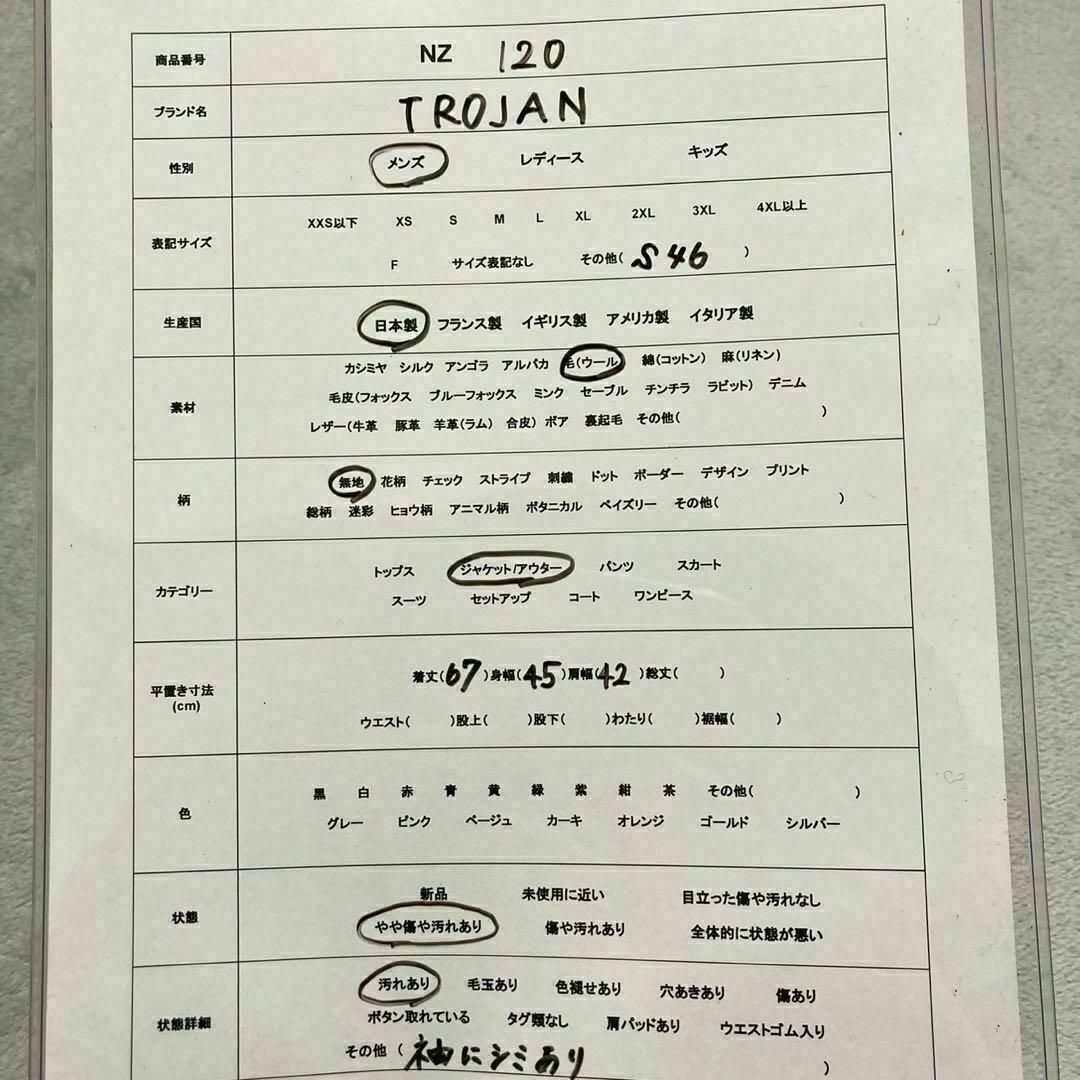 商品番号 NZ 120
ブランド名 TROJAN
性別 メンズ レディース キッズ
表記サイズ
XXS以下 XS S M L XL 2XL 3XL 4XL以上
F サイズ表記なし その他( S 46 )
生産国 日本製 フランス製 イギリス製 アメリカ製 イタリア製
素材
カシミヤ シルク アンゴラ アルパカ 毛(ウール) 綿(コットン) 麻(リネン)
毛皮(フォックス ブルーフォックス ミンク セーブル チンチラ ラビット) デニム
レザー(牛革 豚革 羊革(ラム) 合皮) ボア 裏起毛 その他( )
柄
無地 花柄 チェック ストライプ 刺繍 ドット ボーダー デザイン プリント
総柄 迷彩 ヒョウ柄 アニマル柄 ボタニカル ペイズリー その他( )
カテゴリー
トップス ジャケット/アウター パンツ スカート
スーツ セットアップ コート ワンピース
平置き寸法
(cm)
着丈(67)身幅(45)肩幅(42)総丈( )
ウエスト( )股上( )股下( )わたり( )裾幅( )
色
黒 白 赤 青 黄 緑 紫 紺 茶 その他( )
グレー ピンク ベージュ カーキ オレンジ ゴールド シルバー
状態
新品 未使用に近い 目立った傷や汚れなし
やや傷や汚れあり 傷や汚れあり 全体的に状態が悪い
状態詳細
汚れあり 毛玉あり 色褪せあり 穴あきあり 傷あり
ボタン取れている タグ類なし 肩パッドあり ウエストゴム入り
その他 ( 袖にシミあり )